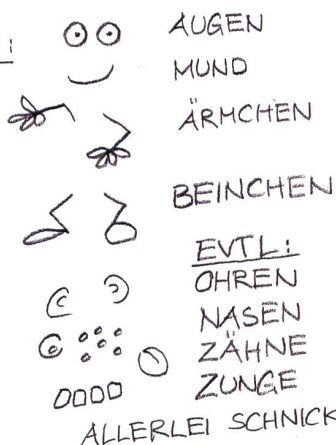 :
AUGEN
MUND
ÄRMCHEN
BEINCHEN
EVTL:
OHREN
NASEN
ZÄHNE
ZUNGE
ALLERLEI SCHNICK